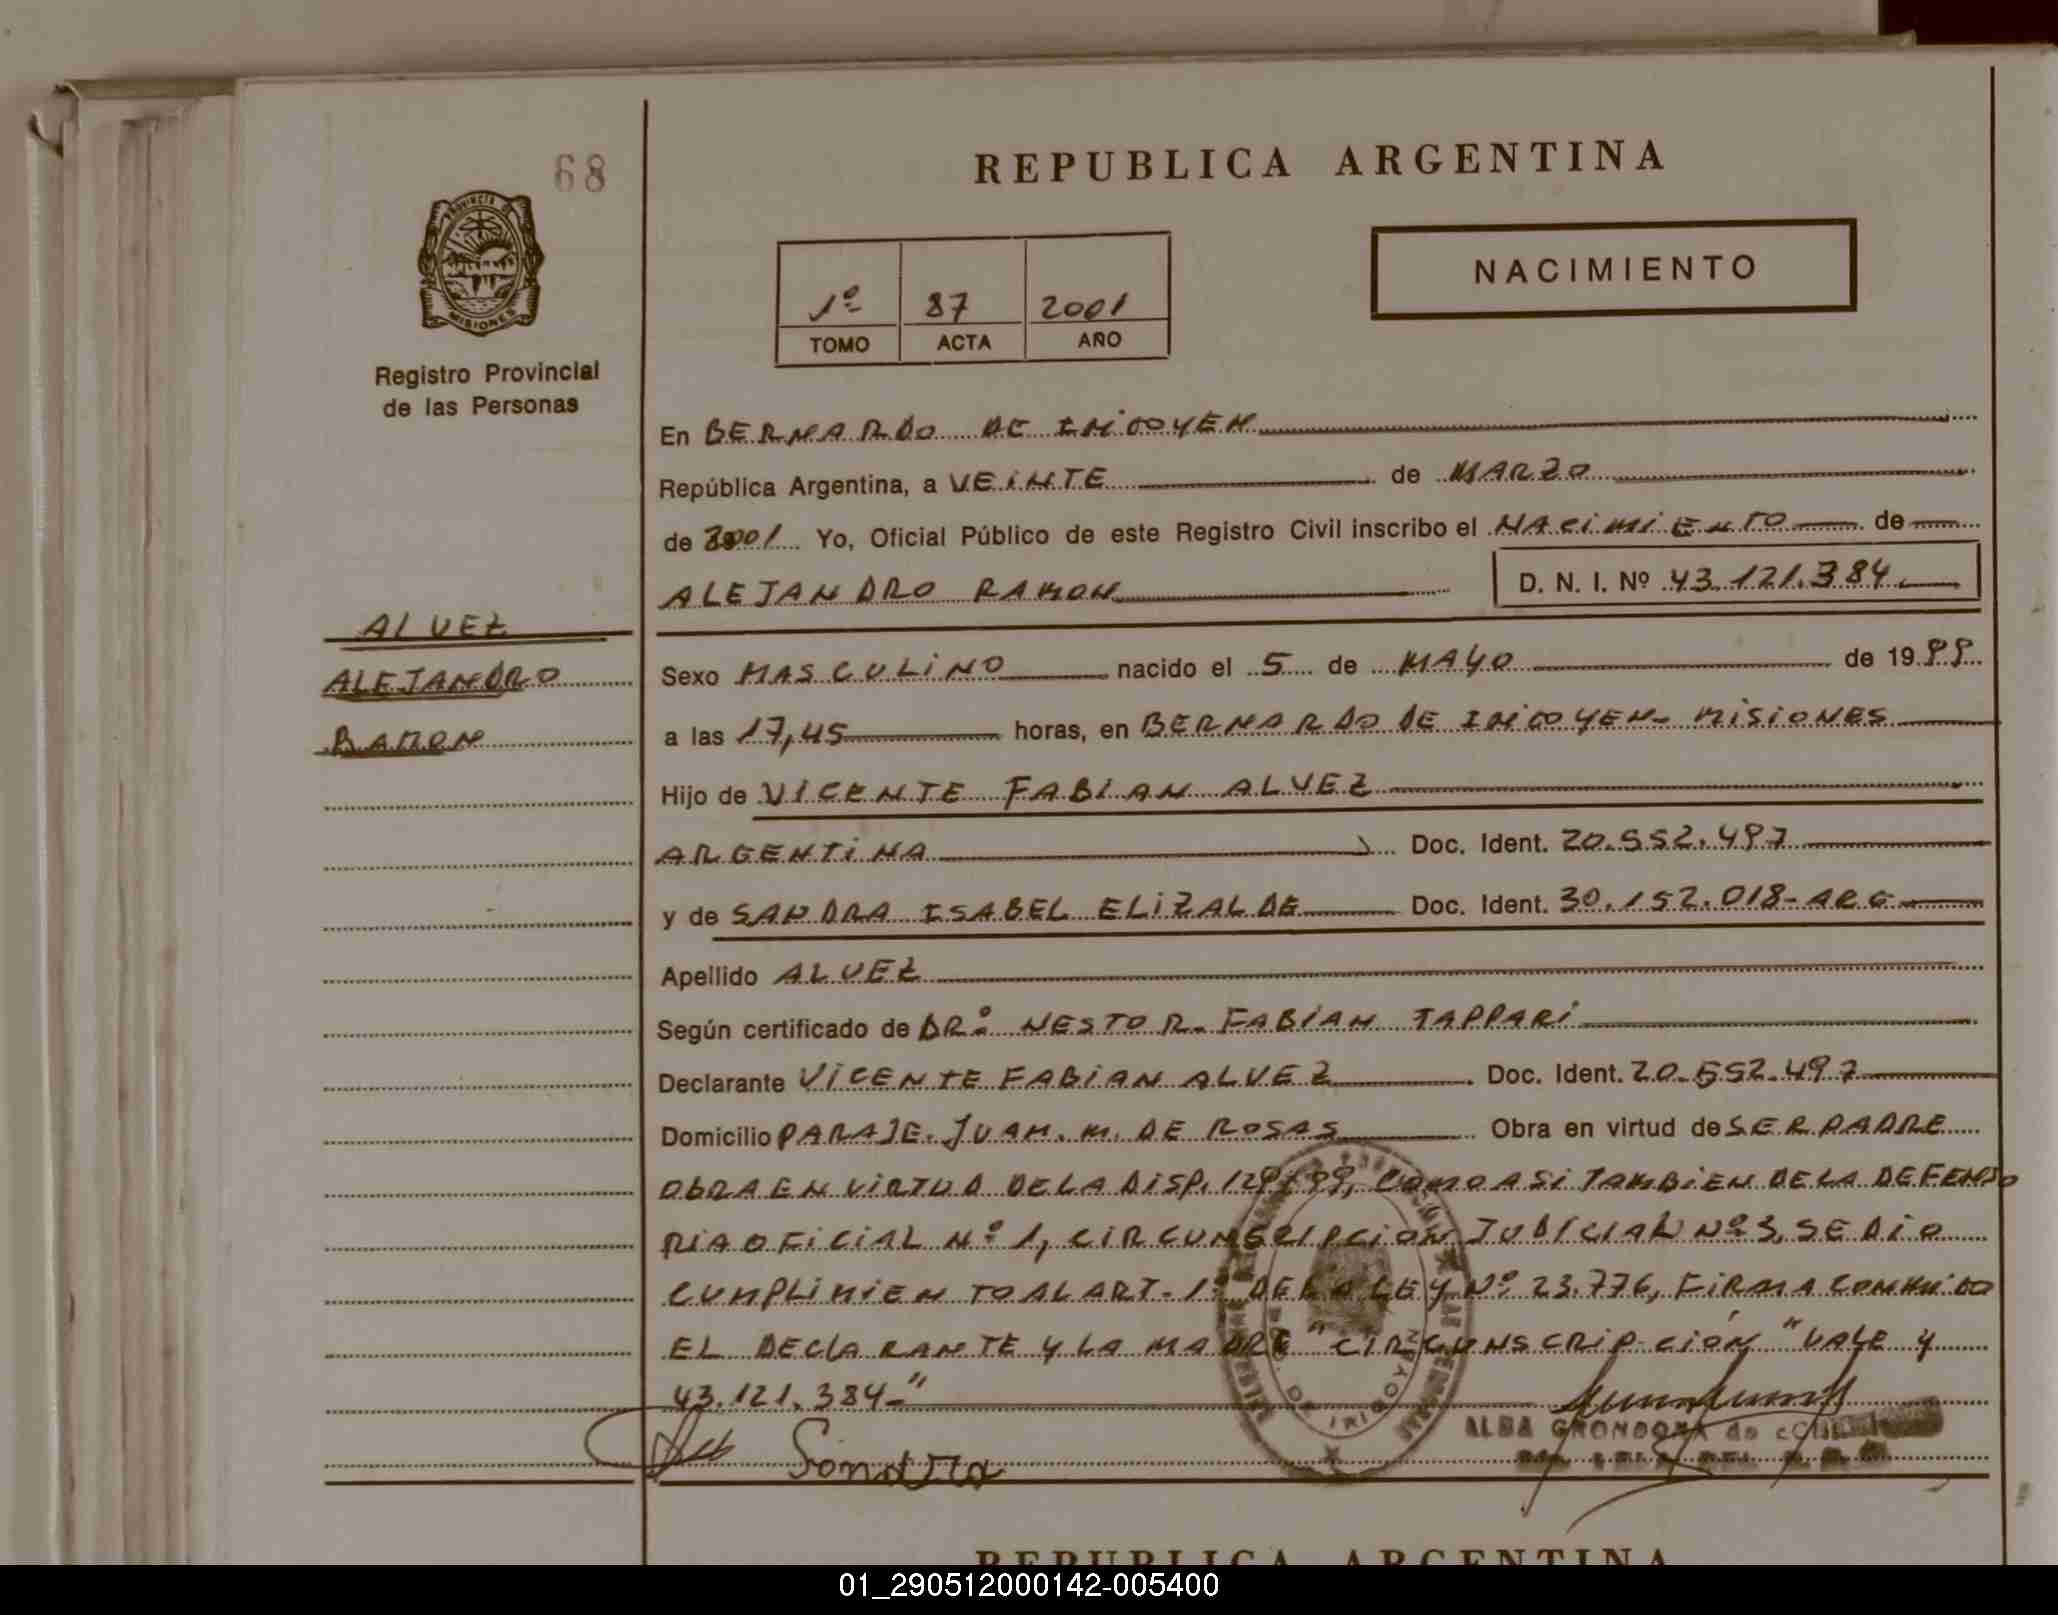 68
REPUBLICA ARGENTINA
PROVINCIA DE
MISIONES
NACIMIENTO
1º 87 2001
TOMO ACTA AÑO
Registro Provincial
de las Personas
En BERNARDO DE IRIGOYEN
República Argentina, a VEINTE de MARZO
de 2001 Yo, Oficial Público de este Registro Civil inscribo el NACIMIENTO de
ALEJANDRO RAMON D. N. I. Nº 43.121.384
ALVEZ
ALEJANDRO
RAMON
Sexo MASCULINO nacido el 5 de MAYO de 1999
a las 17,45 horas, en BERNARDO DE IRIGOYEN - MISIONES
Hijo de VICENTE FABIAN ALVEZ
ARGENTINA Doc. Ident. 20.552.497
y de SANDRA ISABEL ELIZALDE Doc. Ident. 30.152.018-ARG
Apellido ALVEZ
Según certificado de DRº NESTOR FABIAN TAPPARI
Declarante VICENTE FABIAN ALVEZ Doc. Ident. 20.552.497
Domicilio PARAJE JUAN. M. DE ROSAS Obra en virtud de SER PADRE
OBRA EN VIRTUD DE LA DISP. 129/99, COMO ASI TAMBIEN DE LA DEFENSO
RIA OFICIAL Nº 1, CIRCUNSCIPCION JUDICIAL Nº 3, SE DIO
CUMPLIMIENTO AL ART. 1º DE LA LEY Nº 23.776, FIRMA CONMIGO
EL DECLARANTE Y LA MADRE "CIRCUNSCRIPCIÓN" VALE Y
43.121.384-"
Sandra
ALBA GRONDONA de
REPUBLICA ARGENTINA
01_290512000142-005400